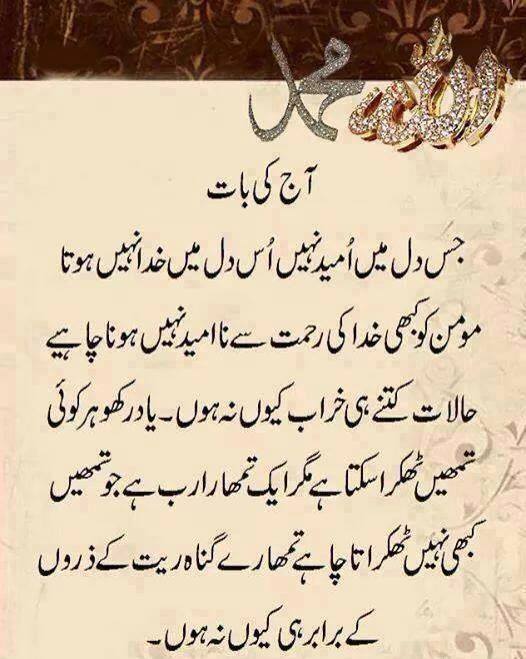 محمد الله
آج کی بات
جس دل میں اُمید نہیں اُس دل میں خدا نہیں ہوتا
مومن کو کبھی خدا کی رحمت سے نا امید نہیں ہونا چاہیے
حالات کتنے ہی خراب کیوں نہ ہوں۔ یاد رکھو ہر کوئی
تمھیں ٹھکرا سکتا ہے مگر ایک تمھارا رب ہے جو تمھیں
کبھی نہیں ٹھکراتا چاہے تمھارے گناہ ریت کے ذروں
کے برابر ہی کیوں نہ ہوں۔